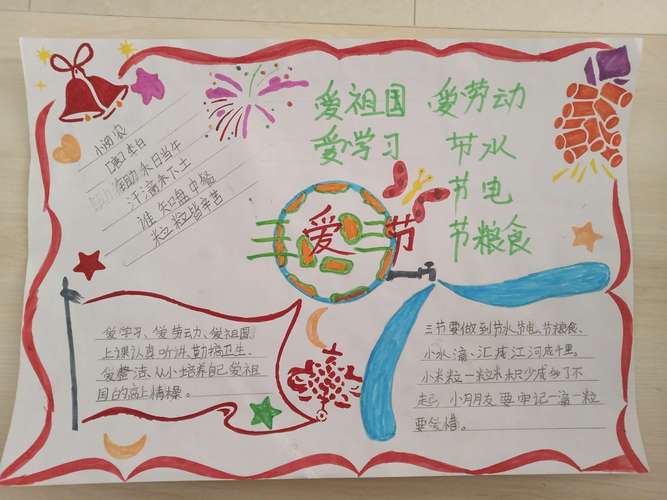 小闵农
[唐]李白
锄助禾日当午
汗滴禾下土
谁知盘中餐
粒粒皆辛苦
爱祖国 爱劳动
爱学习 节水
节电
节粮食
三爱三节
爱学习、爱劳动、爱祖国
上课认真听讲、勤搞卫生、
爱整洁、从小培养自己爱祖
国的高上情操。
三节要做到节水节电、节粮食、
小水滴汇成江河成千里。
小米粒一粒米积少成多了不
起,小朋友要牢记一滴一粒
要爱惜。